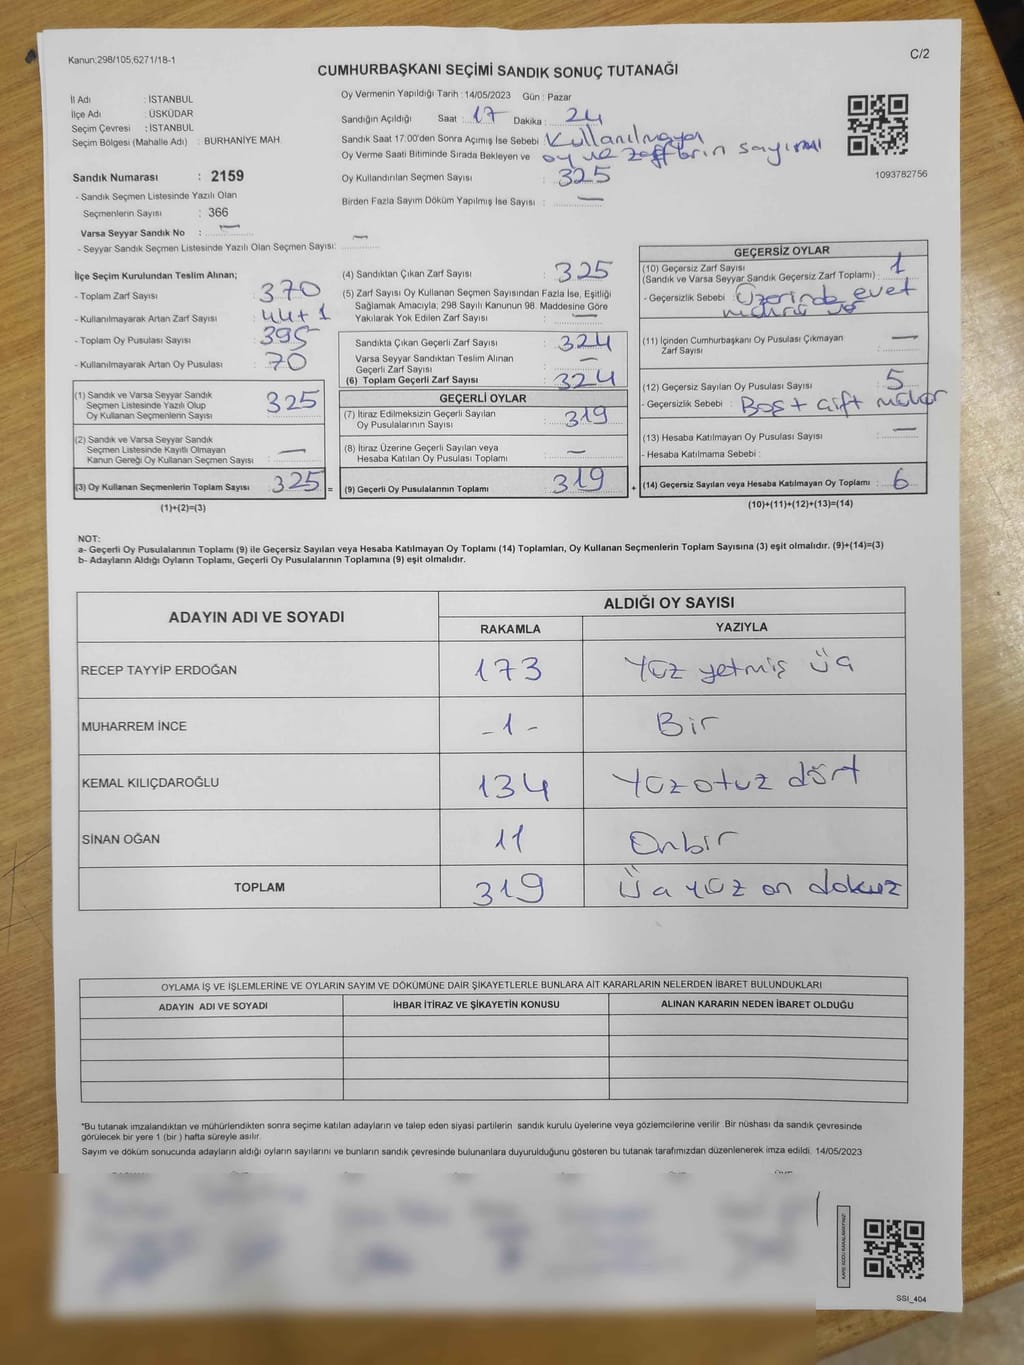 Kanun;298/105,6271/18-1
C/2
CUMHURBAŞKANI SEÇİMİ SANDIK SONUÇ TUTANAĞI
İl Adı : İSTANBUL
İlçe Adı : ÜSKÜDAR
Seçim Çevresi : İSTANBUL
Seçim Bölgesi (Mahalle Adı) : BURHANİYE MAH.
Sandık Numarası : 2159
- Sandık Seçmen Listesinde Yazılı Olan
Seçmenlerin Sayısı : 366
Varsa Seyyar Sandık No : —
- Seyyar Sandık Seçmen Listesinde Yazılı Olan Seçmen Sayısı: —
Oy Vermenin Yapıldığı Tarih :14/05/2023 Gün : Pazar
Sandığın Açıldığı Saat : 17 Dakika : 24
Sandık Saat 17:00'den Sonra Açımış İse Sebebi : Kullanılmayan
Oy Verme Saati Bitiminde Sırada Bekleyen ve oy ve zarfların sayımı
Oy Kullandırılan Seçmen Sayısı : 325
Birden Fazla Sayım Döküm Yapılmış İse Sayısı : —
1093782756
İlçe Seçim Kurulundan Teslim Alınan;
- Toplam Zarf Sayısı : 370
- Kullanılmayarak Artan Zarf Sayısı : 44+1
- Toplam Oy Pusulası Sayısı : 395
- Kullanılmayarak Artan Oy Pusulası : 70
(1) Sandık ve Varsa Seyyar Sandık
Seçmen Listesinde Yazılı Olup
Oy Kullanan Seçmenlerin Sayısı : 325
(2) Sandık ve Varsa Seyyar Sandık
Seçmen Listesinde Kayıtlı Olmayan
Kanun Gereği Oy Kullanan Seçmen Sayısı : —
(3) Oy Kullanan Seçmenlerin Toplam Sayısı : 325 =
(1)+(2)=(3)
(4) Sandıktan Çıkan Zarf Sayısı : 325
(5) Zarf Sayısı Oy Kullanan Seçmen Sayısından Fazla İse, Eşitliği
Sağlamak Amacıyla; 298 Sayılı Kanunun 98. Maddesine Göre
Yakılarak Yok Edilen Zarf Sayısı : —
Sandıkta Çıkan Geçerli Zarf Sayısı : 324
Varsa Seyyar Sandıktan Teslim Alınan
Geçerli Zarf Sayısı : —
(6) Toplam Geçerli Zarf Sayısı : 324
GEÇERLİ OYLAR
(7) İtiraz Edilmeksizin Geçerli Sayılan
Oy Pusulalarının Sayısı : 319
(8) İtiraz Üzerine Geçerli Sayılan veya
Hesaba Katılan Oy Pusulası Toplamı : —
(9) Geçerli Oy Pusulalarının Toplamı : 319 +
GEÇERSİZ OYLAR
(10) Geçersiz Zarf Sayısı
(Sandık ve Varsa Seyyar Sandık Geçersiz Zarf Toplamı) : 1
- Geçersizlik Sebebi : Üzerinde evet
(11) İçinden Cumhurbaşkanı Oy Pusulası Çıkmayan
Zarf Sayısı : —
(12) Geçersiz Sayılan Oy Pusulası Sayısı : 5
- Geçersizlik Sebebi : Boş + çift mühür
(13) Hesaba Katılmayan Oy Pusulası Sayısı : —
- Hesaba Katılmama Sebebi :
(14) Geçersiz Sayılan veya Hesaba Katılmayan Oy Toplamı : 6
(10)+(11)+(12)+(13)=(14)
NOT:
a- Geçerli Oy Pusulalarının Toplamı (9) ile Geçersiz Sayılan veya Hesaba Katılmayan Oy Toplamı (14) Toplamları, Oy Kullanan Seçmenlerin Toplam Sayısına (3) eşit olmalıdır. (9)+(14)=(3)
b- Adayların Aldığı Oyların Toplamı, Geçerli Oy Pusulalarının Toplamına (9) eşit olmalıdır.
ADAYIN ADI VE SOYADI
ALDIĞI OY SAYISI
RAKAMLA YAZIYLA
RECEP TAYYİP ERDOĞAN 173 Yüz yetmiş üç
MUHARREM İNCE -1- Bir
KEMAL KILIÇDAROĞLU 134 Yüz otuz dört
SİNAN OĞAN 11 Onbir
TOPLAM 319 Üç yüz on dokuz
OYLAMA İŞ VE İŞLEMLERİNE VE OYLARIN SAYIM VE DÖKÜMÜNE DAİR ŞİKAYETLERLE BUNLARA AİT KARARLARIN NELERDEN İBARET BULUNDUKLARI
ADAYIN ADI VE SOYADI İHBAR İTİRAZ VE ŞİKAYETİN KONUSU ALINAN KARARIN NEDEN İBARET OLDUĞU
*Bu tutanak imzalandıktan ve mühürlendikten sonra seçime katılan adayların ve talep eden siyasi partilerin sandık kurulu üyelerine veya gözlemcilerine verilir. Bir nüshası da sandık çevresinde
görülecek bir yere 1 (bir ) hafta süreyle asılır.
Sayım ve döküm sonucunda adayların aldığı oyların sayılarını ve bunların sandık çevresinde bulunanlara duyurulduğunu gösteren bu tutanak tarafımızdan düzenlenerek imza edildi. 14/05/2023
KARE KODU KARALAMAYINIZ!
SSI_404